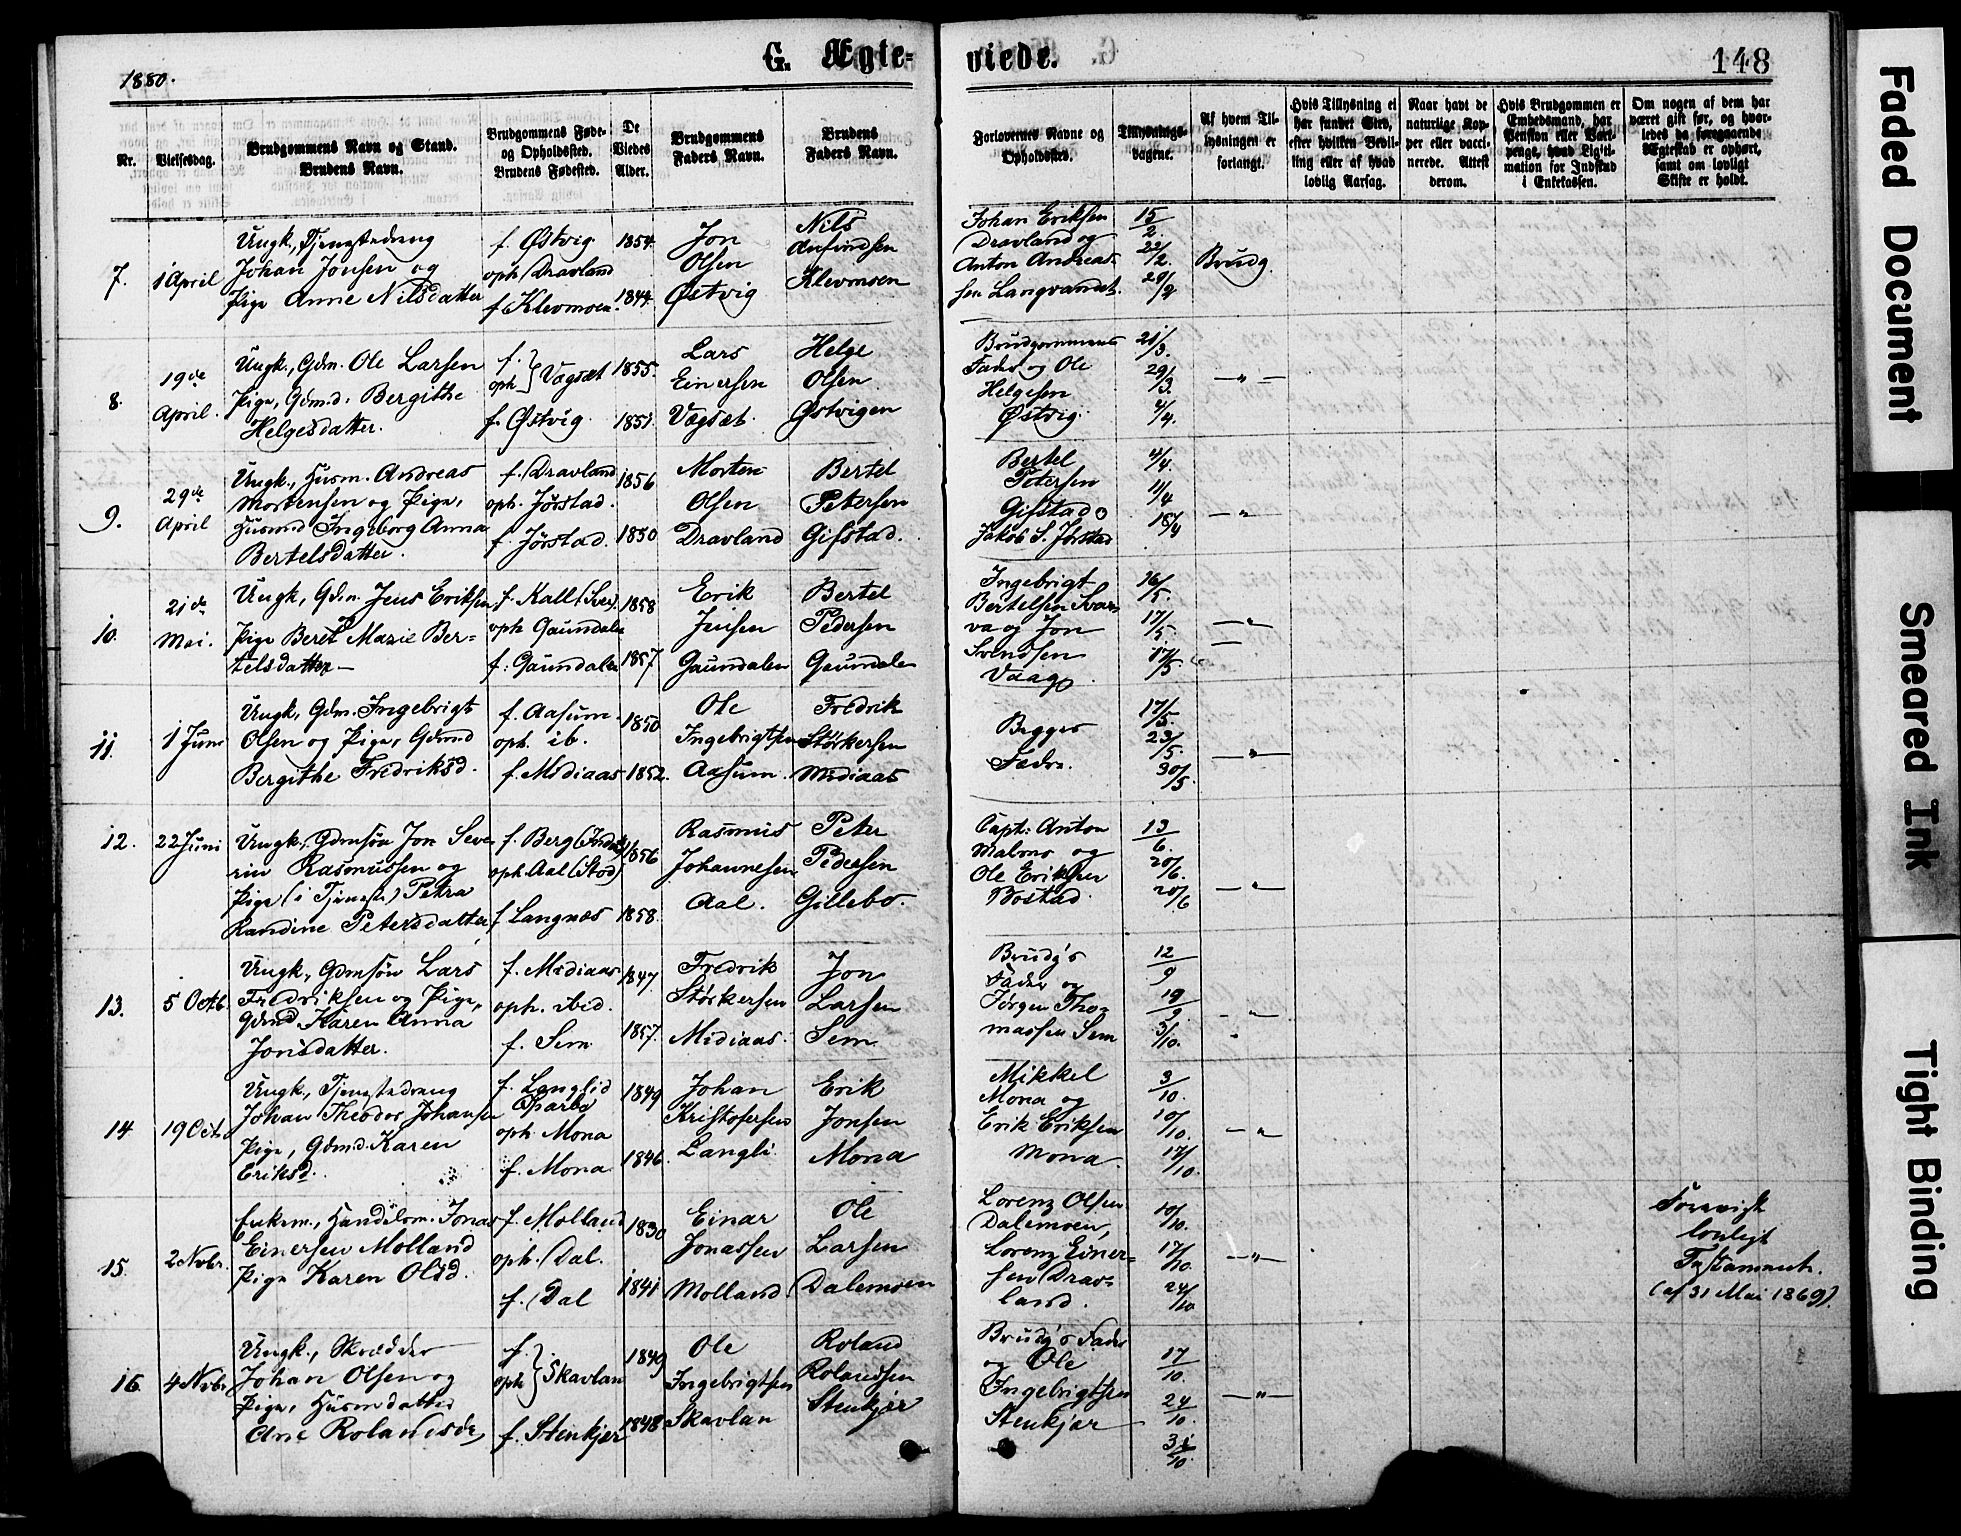 1880.
G. Ægte-
viede.
148
Nr.
Vielsesdag.
Brudgommens Navn og Stand.
Brudens Navn.
Brudgommens Føde-
og Opholdssted.
Brudens Fødested.
De
Viedes
Alder.
Brudgommens
Faders Navn.
Brudens
Faders Navn.
Forlovernes Navne og
Opholdssted.
Tillysnings-
dagene.
Af hvem Til-
lysningen er
forlangt.
Hvis Tillysning ei
har fundet Sted,
efter hvilken Bevil-
ling eller af hvad
lovlig Aarsag.
Naar havt de
naturlige Kop-
per eller vacci-
nerede. Attest
derom.
Hvis Brudgommen er
Embedsmand, har
Pension eller Vart-
penge, hvad Legiti-
mation for Indskud
i Enkekassen.
Om nogen af dem har
været gift før, og hvor-
ledes da foregaaende
Ægteskab er ophørt,
samt om lovligt
Skifte er holdt.
7.
1 April
Ungk., Tjenestedreng
Johan Jonsen og
Pige Anne Nilsdatter
f. Østvig
oph. Dravland
f. Klevmoen.
1854.
1844.
Jon
Olsen
Østvig
Nils
Anfindsen
Klevmoen
Johan Eriksen
Dravland og
Anton Andreas-
sen Langvandet.
15/2.
22/2.
29/2
Brudg.
8.
19de
April.
Ungk., Gdm. Ole Larsen
Pige, Gdmd. Bergithe
Helgesdatter.
f.
oph. } Vægsæt
f. Østvig
1855.
1851.
Lars
Einersen
Vægsæt.
Helge
Olsen
Østvigen
Brudgommens
Fader og Ole
Helgesen
Østvig.
21/3.
29/3.
4/4.
— " —
9.
29de
April
Ungk., Husm. Andreas
Mortensen og Pige,
Husmd Ingeborg Anna
Bertelsdatter.
f. Dravland
oph. Jørstad.
f. Jørstad.
1856
1850
Morten
Olsen
Dravland
Bertel
Petersen
Gifstad.
Bertel
Petersen
Gifstad o
Jakob S. Jørstad
4/4.
11/4
18/4
— " —
10.
21de
Mai.
Ungk, Gdm. Jens Eriksen,
Pige Beret Marie Ber-
telsdatter —
f. Kall (Sver).
oph Gaundalen
f. Gaundalen
1858
1857
Erik
Jensen
Gaundalen
Bertel
Pedersen
Gaundalen
Ingebrigt
Bertelsen Svar-
va og Jon
Svendsen
Vaag.
16/5.
17/5.
17/5.
— " —
11.
1 Juni
Ungk, Gdm. Ingebrigt
Olsen og Pige, Gdmd
Bergithe Fredriksd.
f. Aasum.
oph. ib.
f. Mediaas
1850
1852.
Ole
Ingebrigtsen
Aasum.
Fredrik
Størkersen
Mediaas
Begges
Fædre.
17/5.
23/5.
30/5
— " —
12.
22 Juni
Ungk., Gdmsøn Jon Seve-
rin Rasmussen og
Pige (i Tjeneste) Petra
Randine Petersdatter,
f. Berg (Inderø)
oph. Aal (Stod)
f Langnæs
1856
1858.
Rasmus
Johannesen
Aal.
Peter
Pedersen
Gillebo.
Capt: Anton
Malmo og
Ole Eriksen
Bostad
13/6.
20/6.
20/6
— " —
13.
5 Octb.
Ungk, Gdmsøn Lars
Fredriksen og Pige,
Gdmd. Karen Anna
Jonsdatter.
f. Mediaas
oph. ibid.
f. Sem
1847
1857.
Fredrik
Størkersen
Mediaas.
Jon
Larsen
Sem
Brudg's
Fader og
Jørgen Tho-
massen Sem
12/9
19/9.
3/10.
— " —
14
19 Oct.
Ungk., Tjenestedreng
Johan Theodor Johansen
Pige, Gdmd. Karen
Eriksd.
f. Langlid
Sparbo
oph Mona
f. Mona
1849
1846.
Johan
Kristofersen
Langli
Erik
Jonsen
Mona
Mikkel
Mona og
Erik Eriksen
Mona.
3/10.
10/10.
17/10.
— " —
15.
2 Nvbr.
Enkem., Handelsm. Jonas
Einersen Molland
Pige Karen Olsd.
f. Molland
oph. Dal.
f. Dal
1830
1841
Einar
Jonassen
Molland
Ole
Larsen
Dalemoen
Lorenz Olsen
Dalemoen,
Lorenz Einer-
sen Drav-
land.
10/10.
17/10.
24/10
— " —
Forevist
lovligt
Testament.
(af 31 Mai 1869).
16.
4 Nvbr
Ungk., Skrædder
Johan Olsen og
Pige, Husmdatter
Ane Rolandsdr,
f.
oph } Skavlan
f. Stenkjær
1849
1848
Ole
Ingebrigtsen
Skavlan
Roland
Rolandsen
Stenkjær
Brudg's Fader
og Ole
Ingebrigtsen
Stenkjær
17/10.
24/10.
31/10
— " —
Faded Document
Smeared Ink
Tight Binding